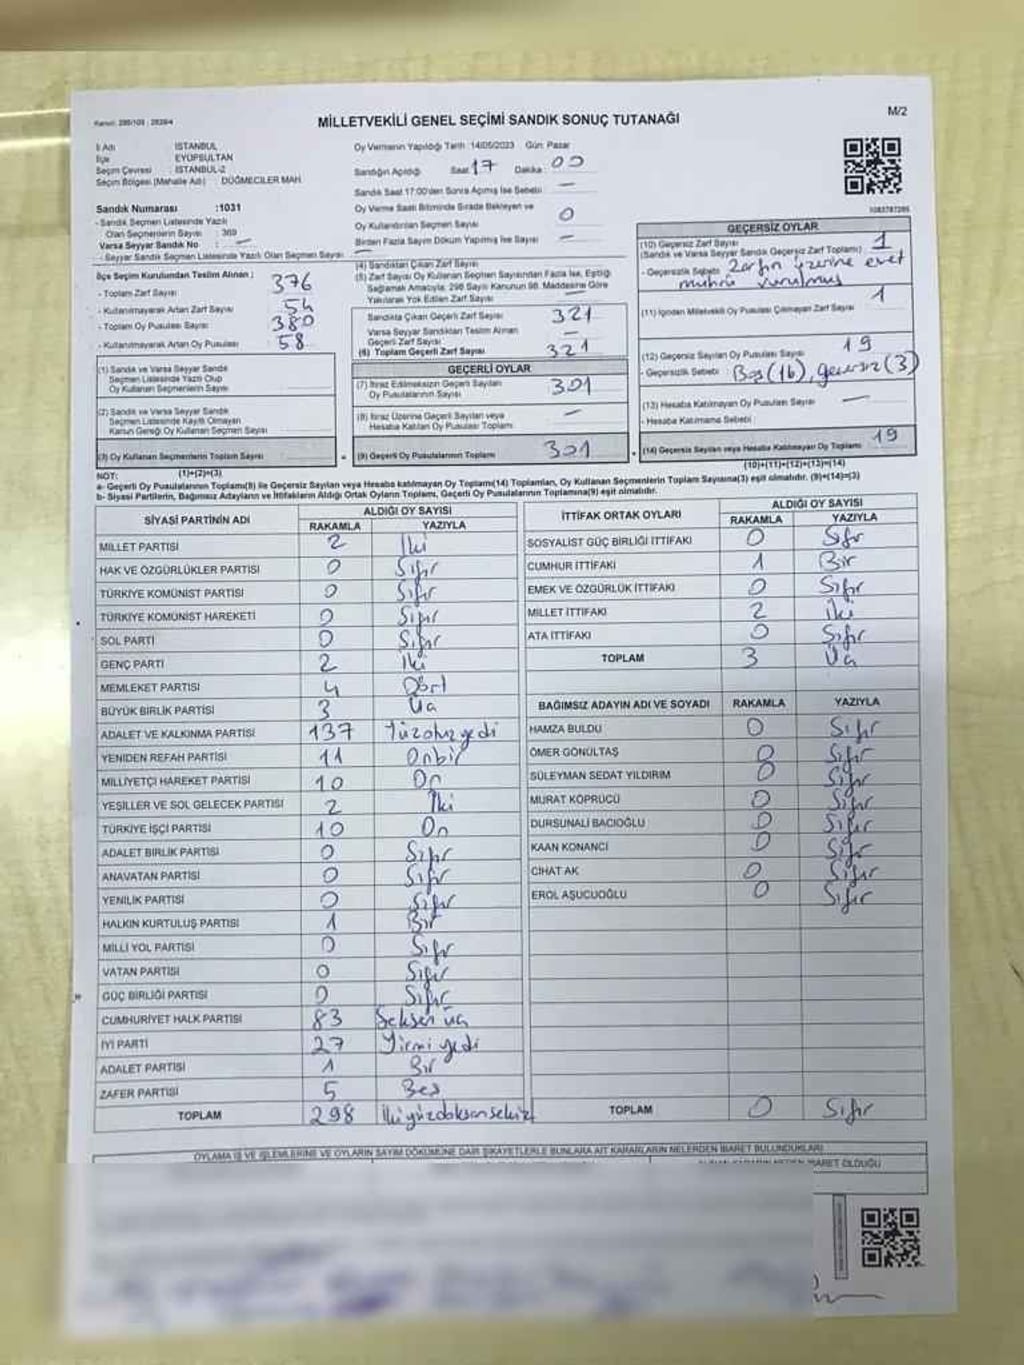 Kanun: 298/105 ; 2839/4
M/2
MİLLETVEKİLİ GENEL SEÇİMİ SANDIK SONUÇ TUTANAĞI
İl Adı İSTANBUL
İlçe EYÜPSULTAN
Seçim Çevresi : İSTANBUL-2
Seçim Bölgesi (Mahalle Adı) : DÜĞMECİLER MAH.
Sandık Numarası :1031
- Sandık Seçmen Listesinde Yazılı
Olan Seçmenlerin Sayısı : 369
Varsa Seyyar Sandık No : —
- Seyyar Sandık Seçmen Listesinde Yazılı Olan Seçmen Sayısı : —
Oy Vermenin Yapıldığı Tarih : 14/05/2023 Gün: Pazar
Sandığın Açıldığı Saat : 17 Dakika : 00
Sandık Saat 17:00'den Sonra Açılmış İse Sebebi : —
Oy Verme Saati Bitiminde Sırada Bekleyen ve
Oy Kullandırılan Seçmen Sayısı : 0
Birden Fazla Sayım Döküm Yapılmış İse Sayısı : —
1083787295
İlçe Seçim Kurulundan Teslim Alınan ;
- Toplam Zarf Sayısı : 376
- Kullanılmayarak Artan Zarf Sayısı : 54
- Toplam Oy Pusulası Sayısı : 380
- Kullanılmayarak Artan Oy Pusulası : 58
(1) Sandık ve Varsa Seyyar Sandık
Seçmen Listesinde Yazılı Olup
Oy Kullanan Seçmenlerin Sayısı
(2) Sandık ve Varsa Seyyar Sandık
Seçmen Listesinde Kayıtlı Olmayan
Kanun Gereği Oy Kullanan Seçmen Sayısı
(3) Oy Kullanan Seçmenlerin Toplam Sayısı
(1)+(2)=(3)
(4) Sandıktan Çıkan Zarf Sayısı
(5) Zarf Sayısı Oy Kullanan Seçmen Sayısından Fazla İse, Eşitliği
Sağlamak Amacıyla, 298 Sayılı Kanunun 98. Maddesine Göre
Yakılarak Yok Edilen Zarf Sayısı —
Sandıkta Çıkan Geçerli Zarf Sayısı 321
Varsa Seyyar Sandıktan Teslim Alınan
Geçerli Zarf Sayısı —
(6) Toplam Geçerli Zarf Sayısı 321
GEÇERLİ OYLAR
(7) İtiraz Edilmeksizin Geçerli Sayılan
Oy Pusulalarının Sayısı 301
(8) İtiraz Üzerine Geçerli Sayılan veya
Hesaba Katılan Oy Pusulası Toplamı —
(9) Geçerli Oy Pusulalarının Toplamı 301
GEÇERSİZ OYLAR
(10) Geçersiz Zarf Sayısı 1
(Sandık ve Varsa Seyyar Sandık Geçersiz Zarf Toplamı)
- Geçersizlik Sebebi : Zarfın üzerine evet
mührü vurulmuş
(11) İçinden Milletvekili Oy Pusulası Çıkmayan Zarf Sayısı 1
(12) Geçersiz Sayılan Oy Pusulası Sayısı : 19
- Geçersizlik Sebebi : Boş (16), geçersiz (3)
(13) Hesaba Katılmayan Oy Pusulası Sayısı —
- Hesaba Katılmama Sebebi :
(14) Geçersiz Sayılan veya Hesaba Katılmayan Oy Toplamı 19
(10)+(11)+(12)+(13)=(14)
NOT:
a- Geçerli Oy Pusulalarının Toplamı(9) ile Geçersiz Sayılan veya Hesaba katılmayan Oy Toplamı(14) Toplamları, Oy Kullanan Seçmenlerin Toplam Sayısına(3) eşit olmalıdır. (9)+(14)=(3)
b- Siyasi Partilerin, Bağımsız Adayların ve İttifakların Aldığı Ortak Oyların Toplamı, Geçerli Oy Pusulalarının Toplamına(9) eşit olmalıdır.
SİYASİ PARTİNİN ADI ALDIĞI OY SAYISI
RAKAMLA YAZIYLA
MİLLET PARTİSİ 2 İki
HAK VE ÖZGÜRLÜKLER PARTİSİ 0 Sıfır
TÜRKİYE KOMÜNİST PARTİSİ 0 Sıfır
TÜRKİYE KOMÜNİST HAREKETİ 0 Sıfır
SOL PARTİ 0 Sıfır
GENÇ PARTİ 2 İki
MEMLEKET PARTİSİ 4 Dört
BÜYÜK BİRLİK PARTİSİ 3 Üç
ADALET VE KALKINMA PARTİSİ 137 Yüzotuzyedi
YENİDEN REFAH PARTİSİ 11 Onbir
MİLLİYETÇİ HAREKET PARTİSİ 10 On
YEŞİLLER VE SOL GELECEK PARTİSİ 2 İki
TÜRKİYE İŞÇİ PARTİSİ 10 On
ADALET BİRLİK PARTİSİ 0 Sıfır
ANAVATAN PARTİSİ 0 Sıfır
YENİLİK PARTİSİ 0 Sıfır
HALKIN KURTULUŞ PARTİSİ 1 Bir
MİLLİ YOL PARTİSİ 0 Sıfır
VATAN PARTİSİ 0 Sıfır
GÜÇ BİRLİĞİ PARTİSİ 0 Sıfır
CUMHURİYET HALK PARTİSİ 83 Seksen üç
İYİ PARTİ 27 Yirmi yedi
ADALET PARTİSİ 1 Bir
ZAFER PARTİSİ 5 Beş
TOPLAM 298 İkiyüzdoksansekiz
İTTİFAK ORTAK OYLARI ALDIĞI OY SAYISI
RAKAMLA YAZIYLA
SOSYALİST GÜÇ BİRLİĞİ İTTİFAKI 0 Sıfır
CUMHUR İTTİFAKI 1 Bir
EMEK VE ÖZGÜRLÜK İTTİFAKI 0 Sıfır
MİLLET İTTİFAKI 2 İki
ATA İTTİFAKI 0 Sıfır
TOPLAM 3 Üç
BAĞIMSIZ ADAYIN ADI VE SOYADI RAKAMLA YAZIYLA
HAMZA BULDU 0 Sıfır
ÖMER GÖNÜLTAŞ 0 Sıfır
SÜLEYMAN SEDAT YILDIRIM 0 Sıfır
MURAT KÖPRÜCÜ 0 Sıfır
DURSUNALİ BACIOĞLU 0 Sıfır
KAAN KONANCİ 0 Sıfır
CİHAT AK 0 Sıfır
EROL AŞUCUOĞLU 0 Sıfır
TOPLAM 0 Sıfır
OYLAMA İŞ VE İŞLEMLERİNE VE OYLARIN SAYIM DÖKÜMÜNE DAİR ŞİKAYETLERLE BUNLARA AİT KARARLARIN NELERDEN İBARET BULUNDUKLARI
İBARET OLDUĞU